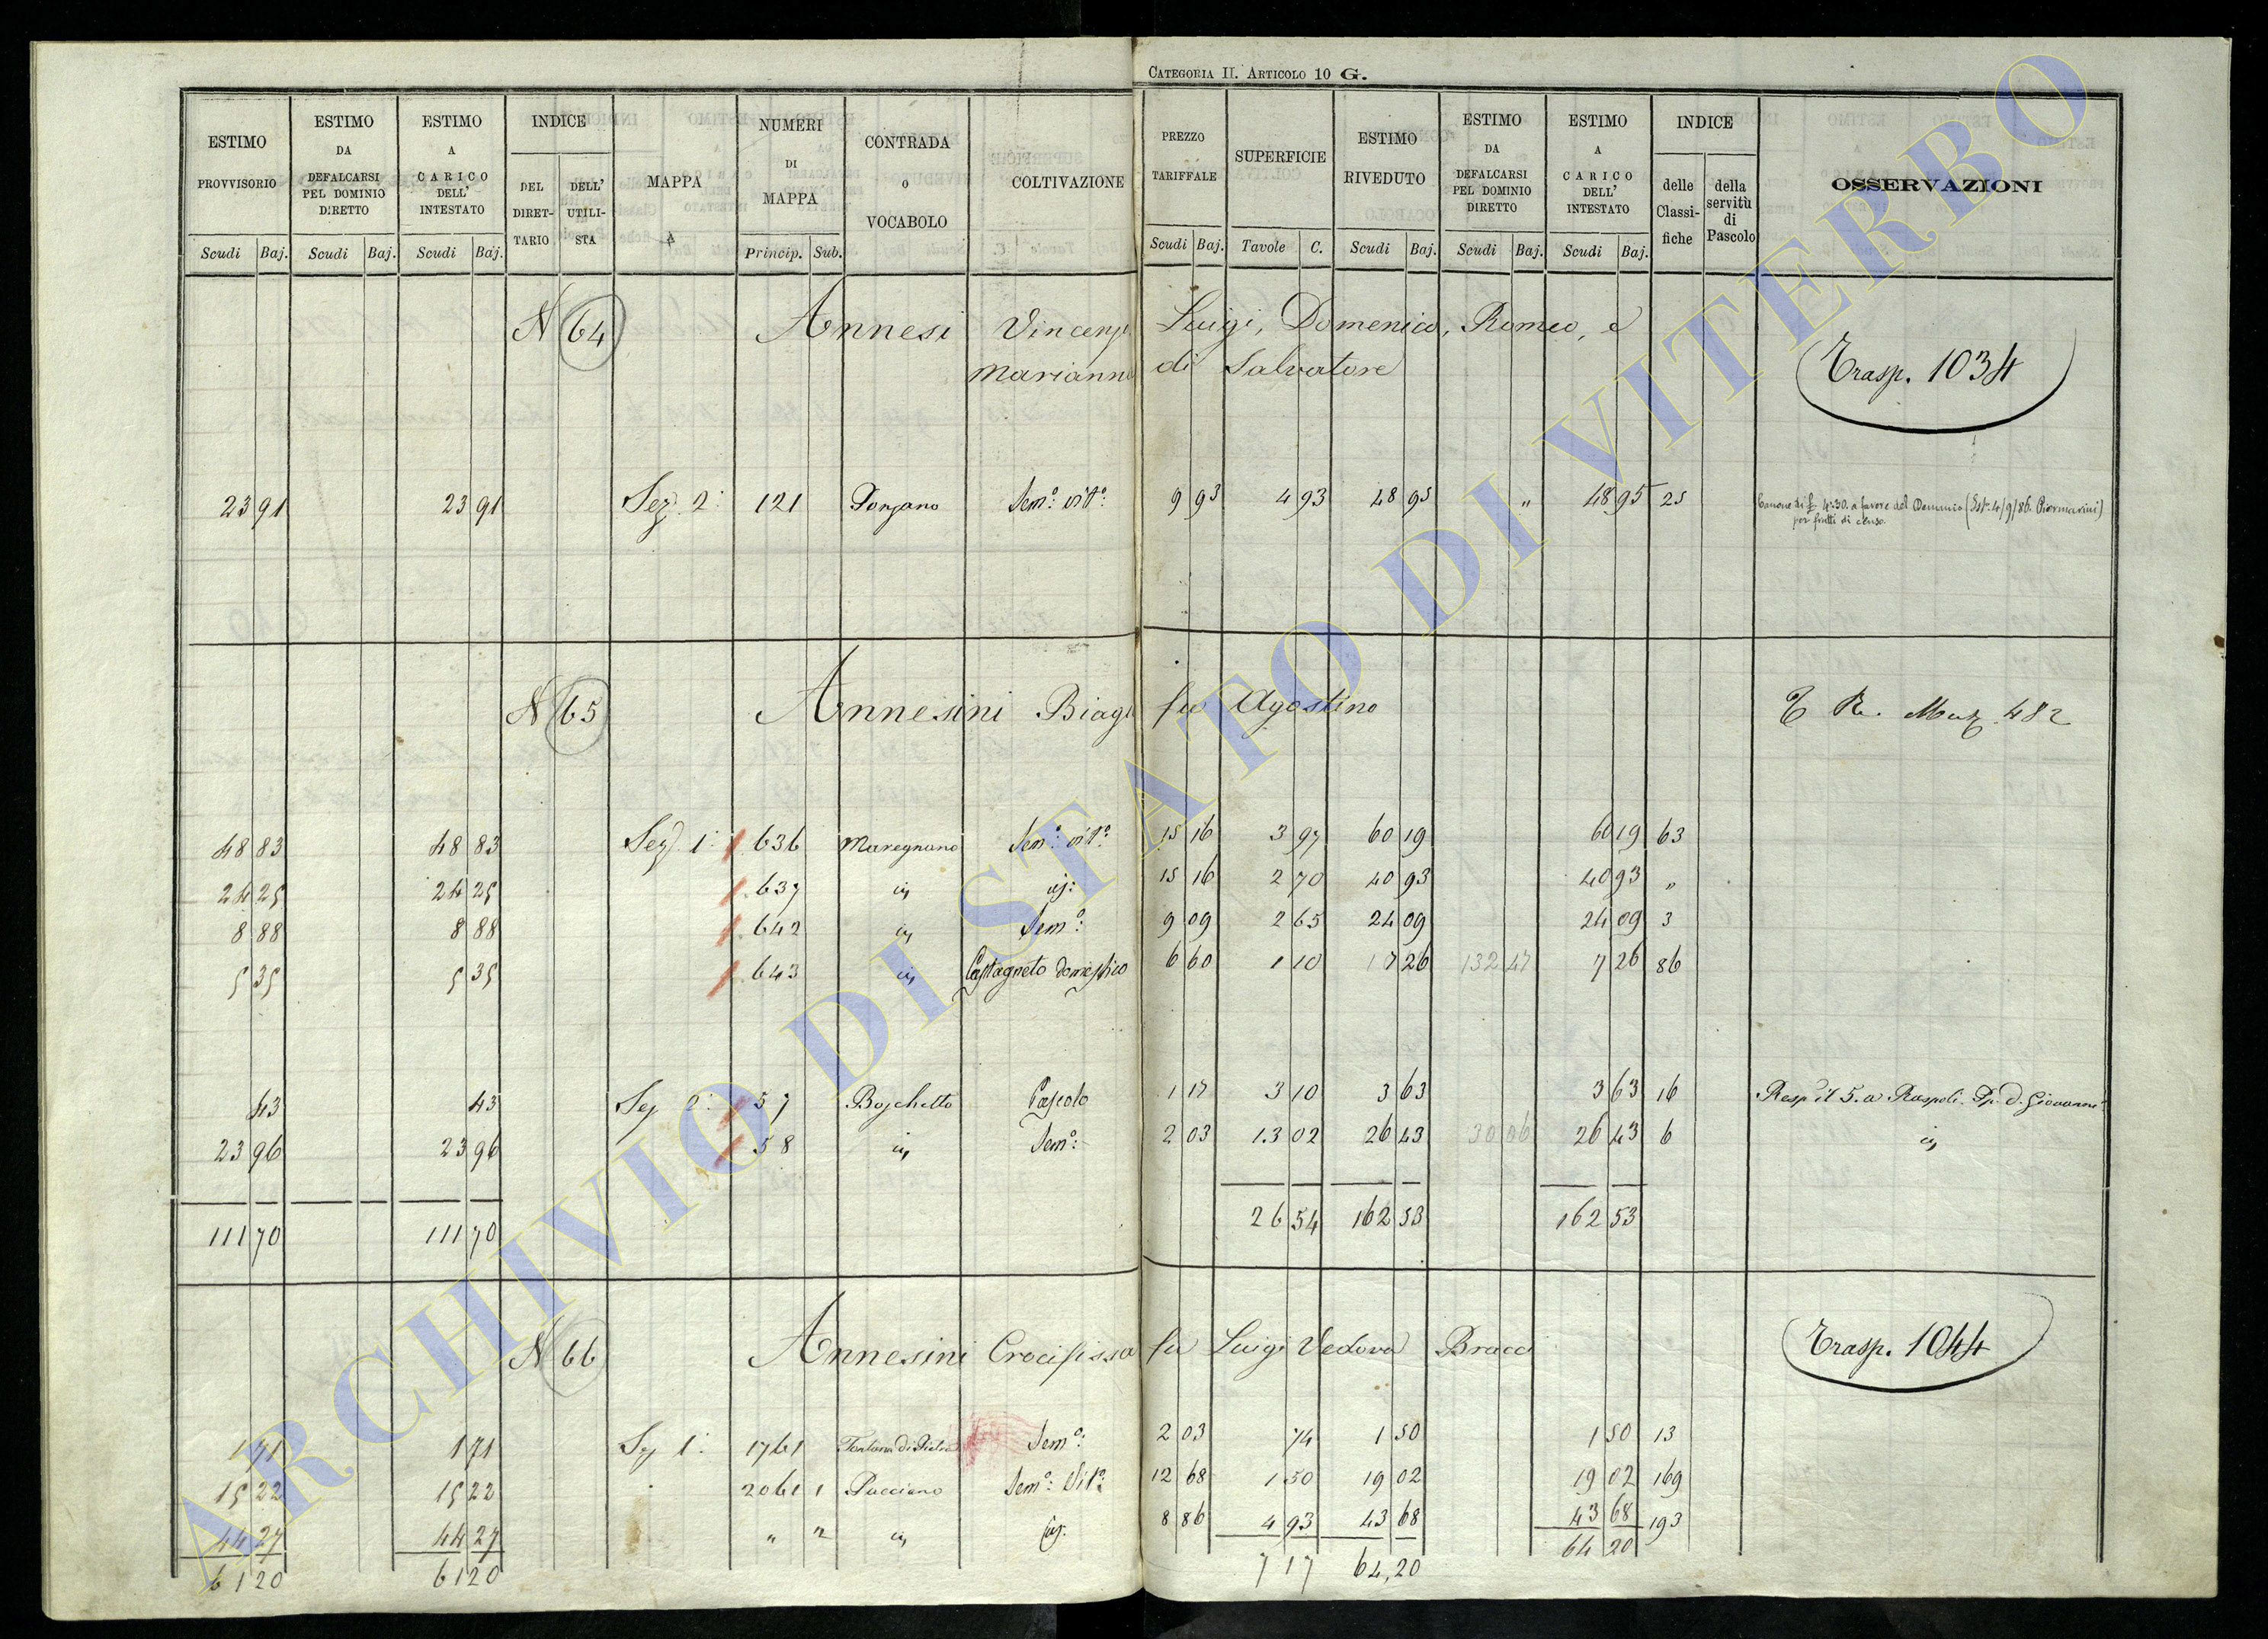 CATEGORIA II. ARTICOLO 10 G.
ESTIMO PROVVISORIO Scudi Baj. | ESTIMO DA DEFALCARSI PEL DOMINIO DIRETTO Scudi Baj. | ESTIMO A CARICO DELL' INTESTATO Scudi Baj. | INDICE DEL DIRET-TARIO | DELL' UTILI-STA | MAPPA | NUMERI DI MAPPA Princip. Sub. | CONTRADA O VOCABOLO | COLTIVAZIONE | PREZZO TARIFFALE Scudi Baj. | SUPERFICIE Tavole C. | ESTIMO RIVEDUTO Scudi Baj. | ESTIMO DA DEFALCARSI PEL DOMINIO DIRETTO Scudi Baj. | ESTIMO A CARICO DELL' INTESTATO Scudi Baj. | INDICE delle Classi-fiche | della servitù di Pascolo | OSSERVAZIONI
N 64 Annesi Vincenzo Luigi, Domenico, Romeo, e
Marianna di Salvatore
Trasp. 1034
23 91 23 91 Sez. 2ª 121 Ponzano Semº vitº 9 93 4 93 48 95 " 48 95 25 Canone di £ 4.30. a favore del Demanio (Ist. 4/9/86. Piermarini)
per frutti di censo.
N 65 Annesini Biagio fu Agostino
R. Mutz. 482
48 83 48 83 Sez. 1ª 636 Maregnano Semº vitº 15 16 3 97 60 19 60 19 63
24 25 24 25 637 15 16 2 70 40 93 40 93 "
8 88 8 88 642 Semº 9 09 2 65 24 09 24 09 3
5 35 5 35 643 Castagneto domestico 6 60 1 10 7 26 132 47 7 26 86
43 43 Sez. 2ª 57 Boschetto Pascolo 1 17 3 10 3 63 3 63 16 Resp. il 5. a Ruspoli Giovanni
23 96 23 96 58 Semº 2 03 13 02 26 43 30 06 26 43 6
111 70 111 70 26 54 162 53 162 53
N 66 Annesini Crocifissa fu Luigi Vedova Bracci
Trasp. 1044
1 71 1 71 Sez. 1ª 1761 Fontana di Semº 2 03 74 1 50 1 50 13
15 22 15 22 2061 1 Pacciano Semº Vitº 12 68 1 50 19 02 19 02 169
44 27 44 27 " 2 8 86 4 93 43 68 43 68 193
61 20 61 20 7 17 64,20 64 20
ARCHIVIO DI STATO DI VITERBO